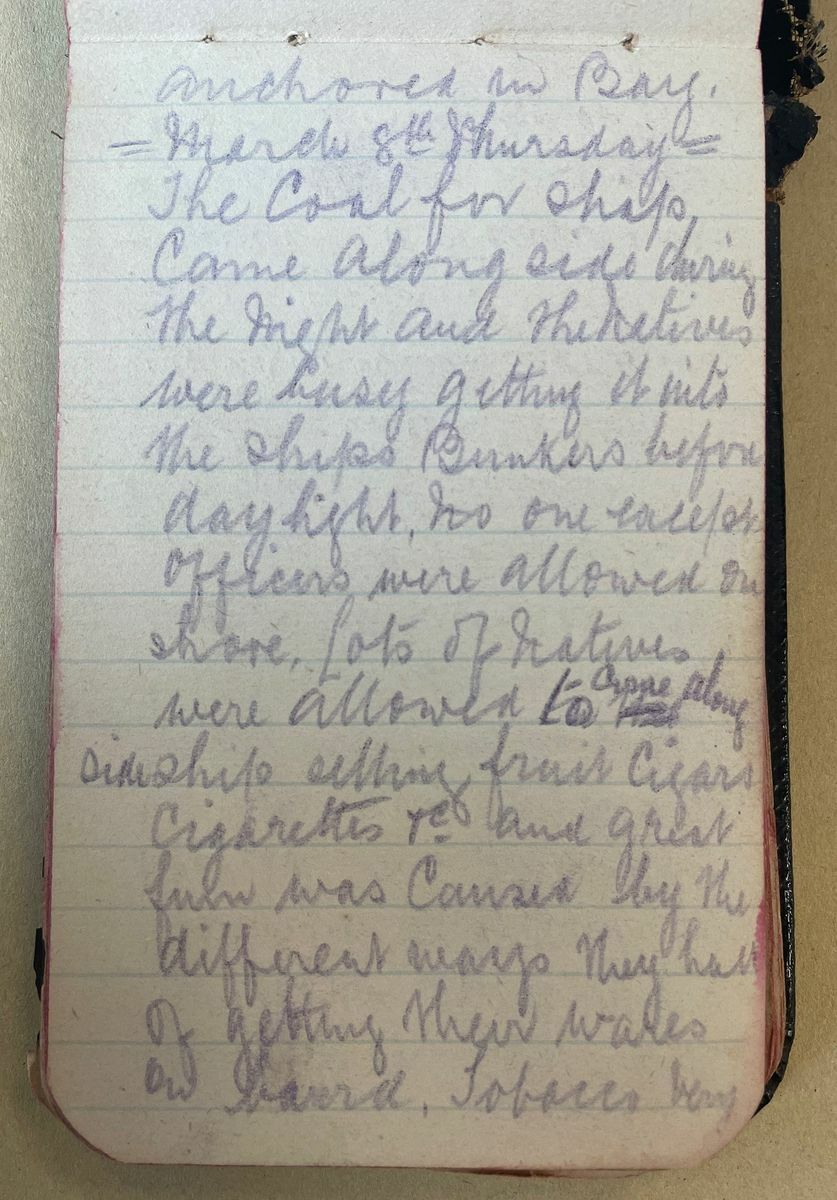 anchored in Bay.
= March 8th Thursday =
The Coal for ship
Came along side during
the Night and the Natives
were busy getting it into
the ships Bunkers before
daylight, No one except
Officers were allowed on
shore. Lots of Natives
were allowed to come along
side ship selling fruit Cigars
Cigarettes &c and great
funn was Caused by the
different ways they had
of getting their wares
on board. Tobacco very